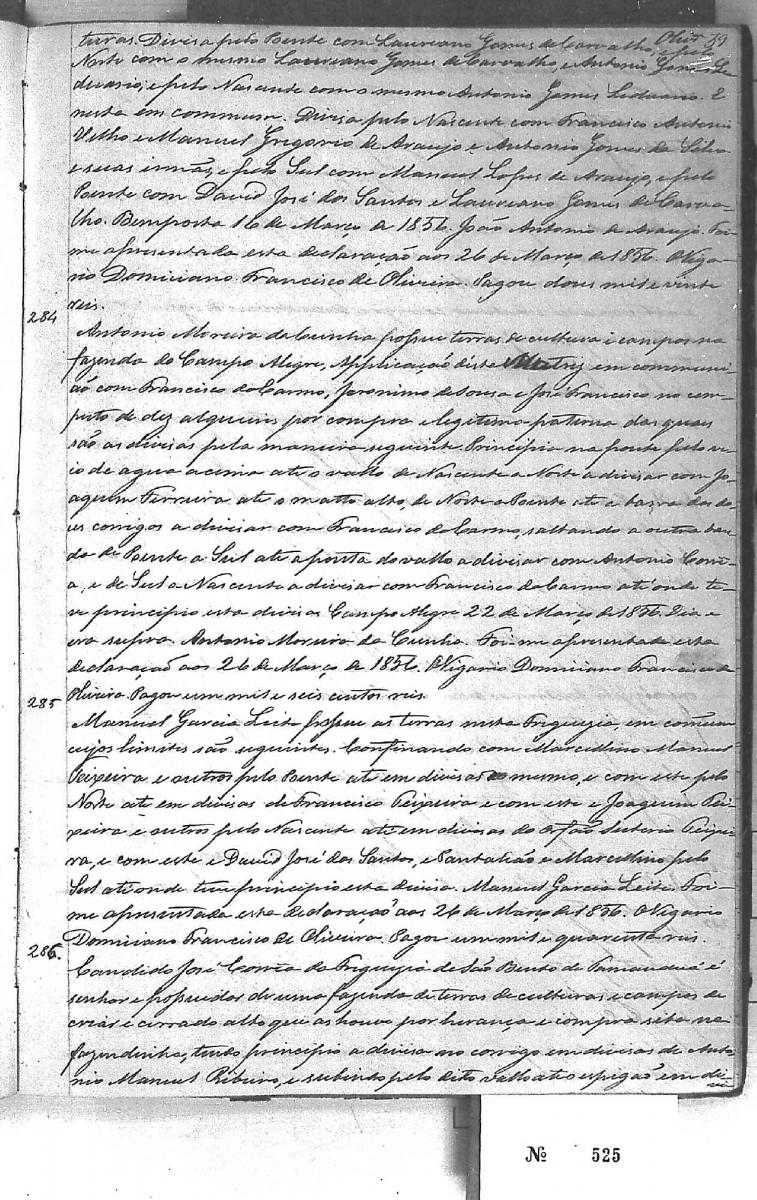 Oliv.ra 79
terras. Divisa pelo Poente com Laureano Gomes de Carvalho, e pelo
Norte com o mesmo Laureano Gomes de Carvalho, e Antonio Gomes Le
duario, e pelo Nascente com o mesmo Antonio Gomes Leduario. E
nesta em commum. Divisa pelo Nascente com Francisco Antonio
Velho e Manuel Gregorio de Araujo e Antonio Gomes da Silva
e suas irmãs, e pelo Sul com Manuel Lopes de Araujo, e pelo
Poente com David José dos Santos e Laureano Gomes de Carva-
lho. Bemposta 16 de Março de 1856. João Antonio de Araujo. Foi-
me apresentada esta declaração aos 26 de Março de 1856. O Viga-
rio Domiciano Francisco de Oliveira. Pagou dous mil e vinte
reis.
284
Antonio Moreira da Cunha possue terras de cultura e campos na
fazenda do Campo Alegre, Applicação desta Matriz em communi
ão com Francisco do Carmo, Jeronimo de Sousa e José Francisco no com-
puto de dez alqueires por compra e legitima paterna das quaes
são as divisas pela maneira seguinte. Principia na ponte pelo ve-
io de agua acima até o vallo de Nascente a Norte a divisar com Jo-
aquim Ferreira até o matto alto, de Norte a Poente até a barra dos do-
us corrigos a divisar com Francisco do Carmo, saltando a outra ban-
da de Poente a Sul até a ponta do vallo a divisar com Antonio Corre-
a, e de Sul a Nascente a divisar com Francisco do Carmo até onde te-
ve principio esta divisa. Campo Alegre 22 de Março de 1856. Dia e
era supra. Antonio Moreira da Cunha. Foi-me apresentada esta
declaração aos 26 de Março de 1856. O Vigario Domiciano Francisco de
285
Oliveira. Pagou um mil e seis centos reis.
Manuel Garcia Leite possue as terras nesta Freguezia, em comum
cujos limites são seguintes. Confinando com Marcellino Manuel
Teixeira e outros pelo Poente até em divisas do mesmo, e com este pelo
Norte até em divisas de Francisco Teixeira e com este e Joaquim Tei-
xeira e outros pelo Nascente até em divisas do Orfão Luterio Teixei-
ra, e com este e David José dos Santos, e Pantalião e Marcellino pelo
Sul até onde teve principio esta divisa. Manuel Garcia Leite. Foi-
me apresentada esta declaração aos 26 de Março de 1856. O Vigario
Domiciano Francisco de Oliveira. Pagou um mil e quarenta reis.
286.
Candido José Corrêa da Freguezia de São Bento de Tamanduá é
senhor e possuidor de uma fazenda de terras de culturas e campos de
criar e cerrado alto que as houve por herança e compra sita na
fazendinha, tendo principio a divisa no corrigo em divisas de Anto-
nio Manuel Ribeiro, e subindo pelo dito vallo até o espigão em di-
vi
Nº 525